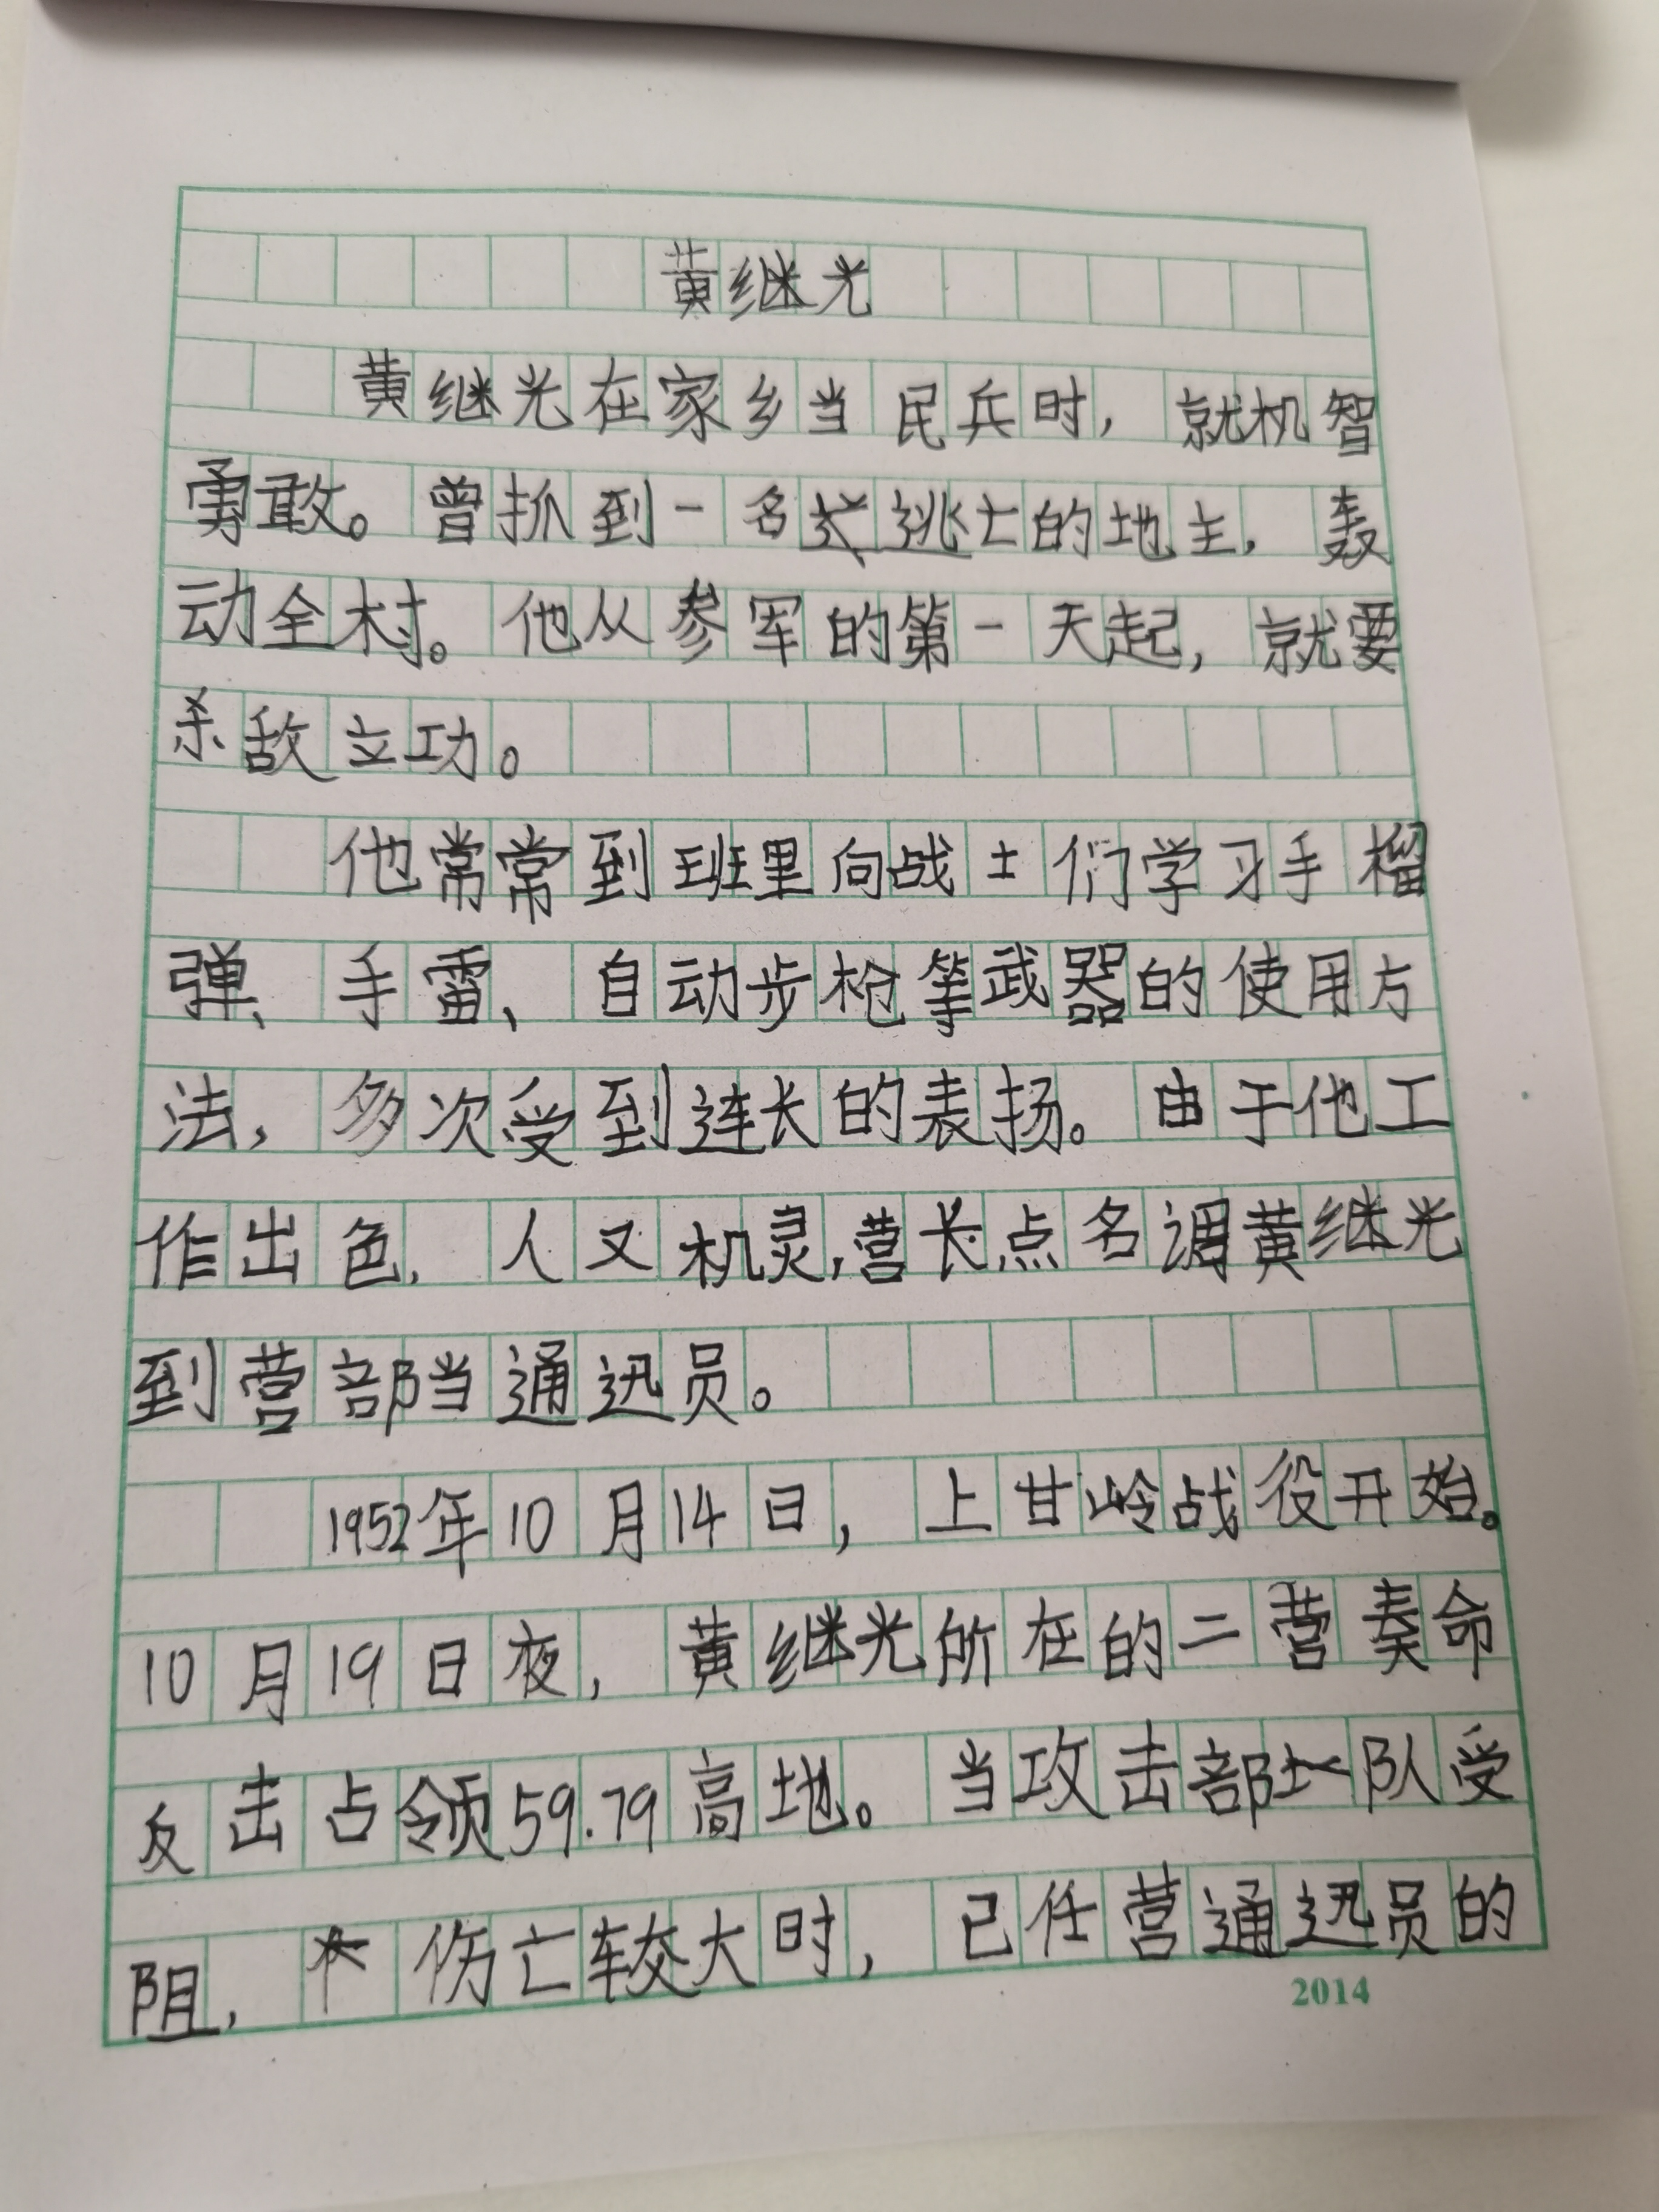 黄继光
黄继光在家乡当民兵时，就机智
勇敢。曾抓到一名逃亡的地主，轰
动全村。他从参军的第一天起，就要
杀敌立功。
他常常到班里向战士们学习手榴
弹、手雷、自动步枪等武器的使用方
法，多次受到连长的表扬。由于他工
作出色，人又机灵，营长点名调黄继光
到营部当通迅员。
1952年10月14日，上甘岭战役开始。
10月19日夜，黄继光所在的二营奏命
反击占领59.79高地。当攻击部队受
阻，伤亡较大时，已任营通迅员的
2014